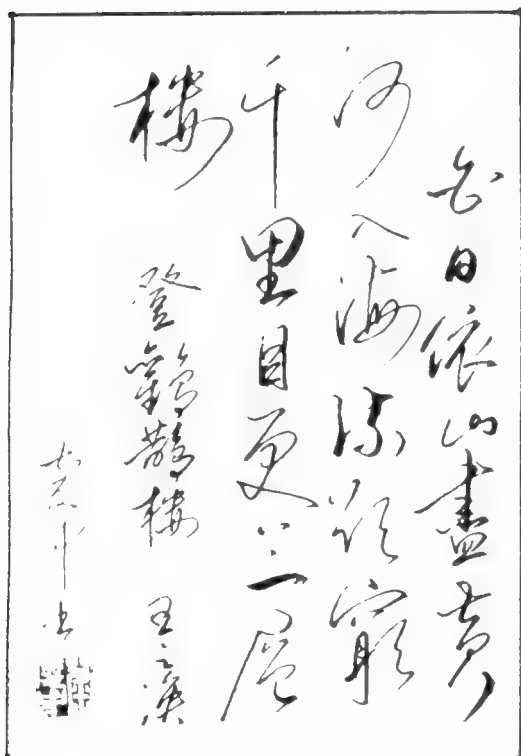 白日依山盡黄
河入海流欲窮
千里目更上一層
楼
登鸛鵲楼 王之渙
书